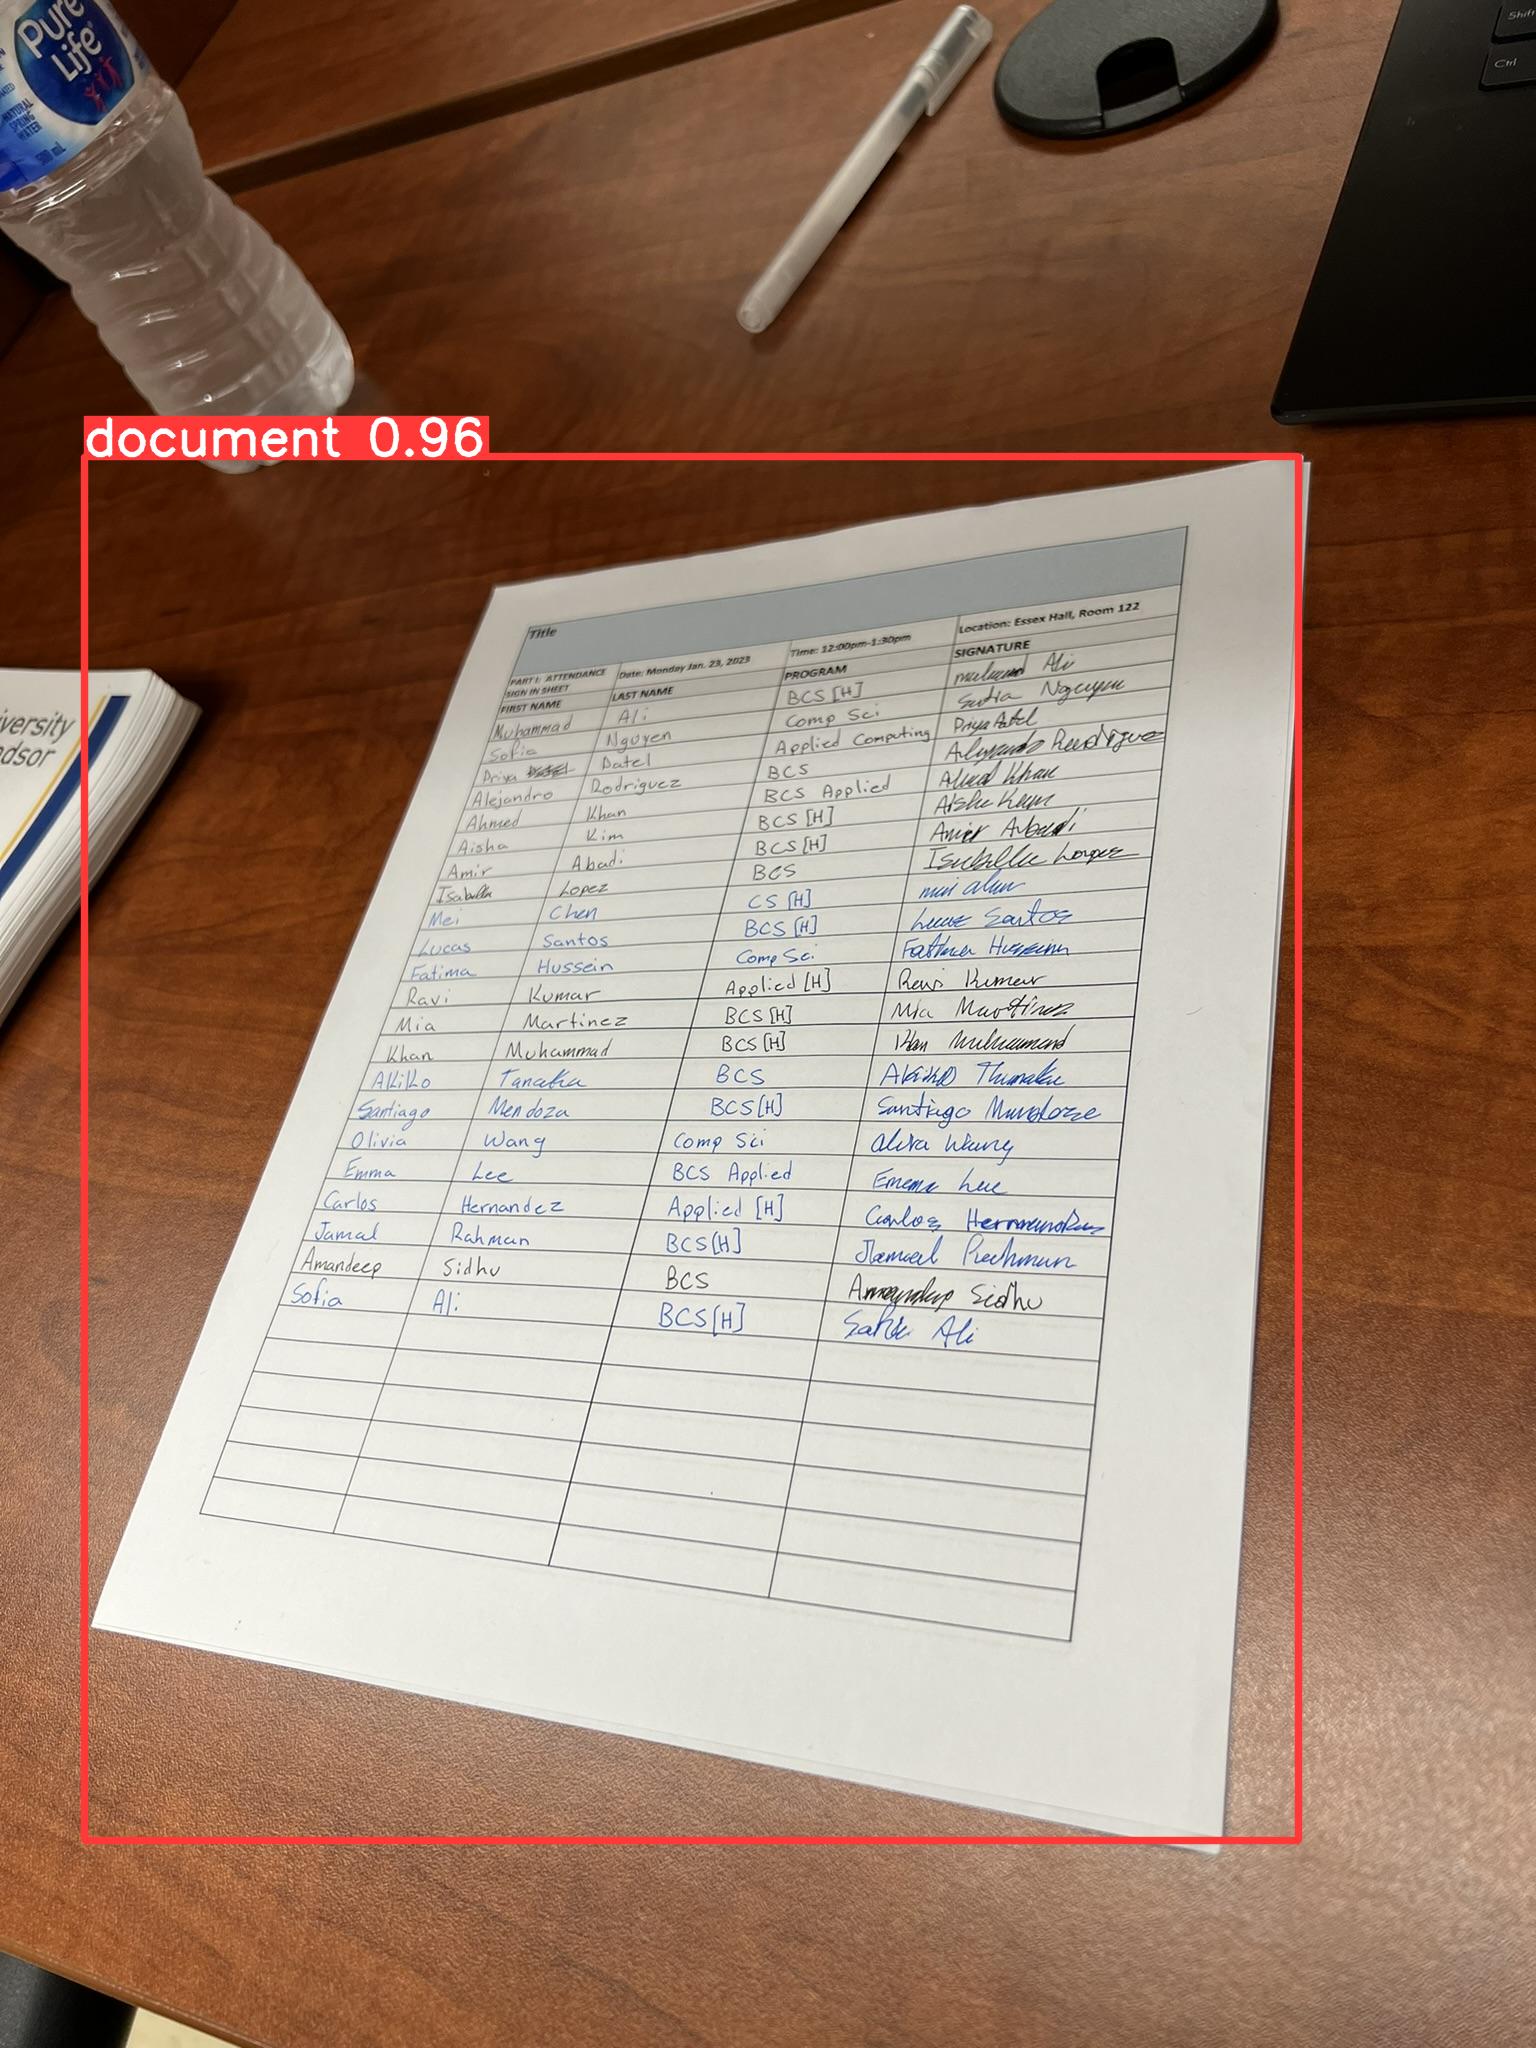 Pure
Life
NATURAL
SPRING
WATER
500 mL
Shift
Ctrl
document 0.96
iversity
ndsor
Title
PART I: ATTENDANCE SIGN IN SHEET Date: Monday Jan. 23, 2023 Time: 12:00pm-1:30pm Location: Essex Hall, Room 122
FIRST NAME LAST NAME PROGRAM SIGNATURE
Muhammad Ali BCS [H] Ali
Sofia Nguyen Comp Sci Nguyen
Priya Patel Applied Computing Priya Patel
Alejandro Rodriguez BCS Alejandro Rodriguez
Ahmed Khan BCS Applied Ahmed Khan
Aisha Kim BCS [H] Aisha Kim
Amir Abadi BCS [H] Amir Abadi
Isabella Lopez BCS Isabella Lopez
Mei Chen CS [H]
Lucas Santos BCS [H] Lucas Santos
Fatima Hussein Comp Sci Fatima Hussein
Ravi Kumar Applied [H] Ravi Kumar
Mia Martinez BCS [H] Mia Martinez
Khan Muhammad BCS [H] Khan Muhammad
Akiko Tanaka BCS Akiko Tanaka
Santiago Mendoza BCS [H] Santiago Mendoza
Olivia Wang Comp Sci Olivia Wang
Emma Lee BCS Applied Emma Lee
Carlos Hernandez Applied [H] Carlos Hernandez
Jamal Rahman BCS [H] Jamal Rahman
Amandeep Sidhu BCS Amandeep Sidhu
Sofia Ali BCS [H] Sofia Ali